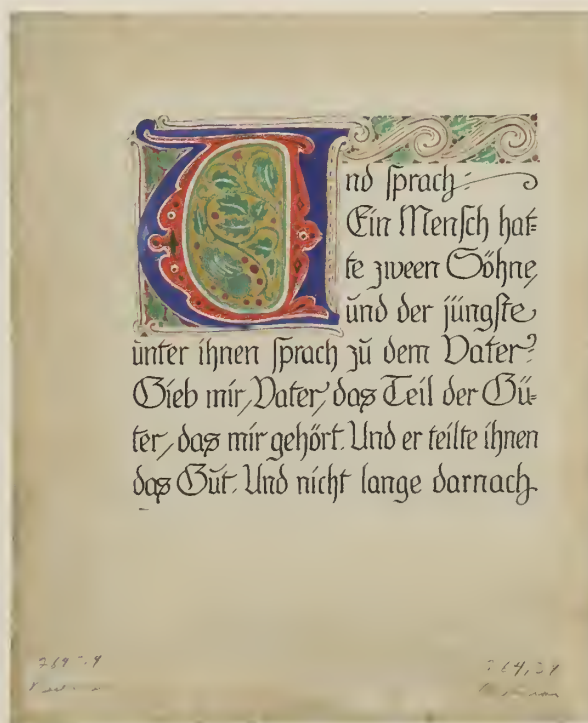 Und sprach:
Ein Mensch hat=
te zween Söhne,
und der jüngste
unter ihnen sprach zu dem Vater:
Gieb mir, Vater, das Teil der Gü=
ter, das mir gehört. Und er teilte ihnen
das Gut. Und nicht lange darnach